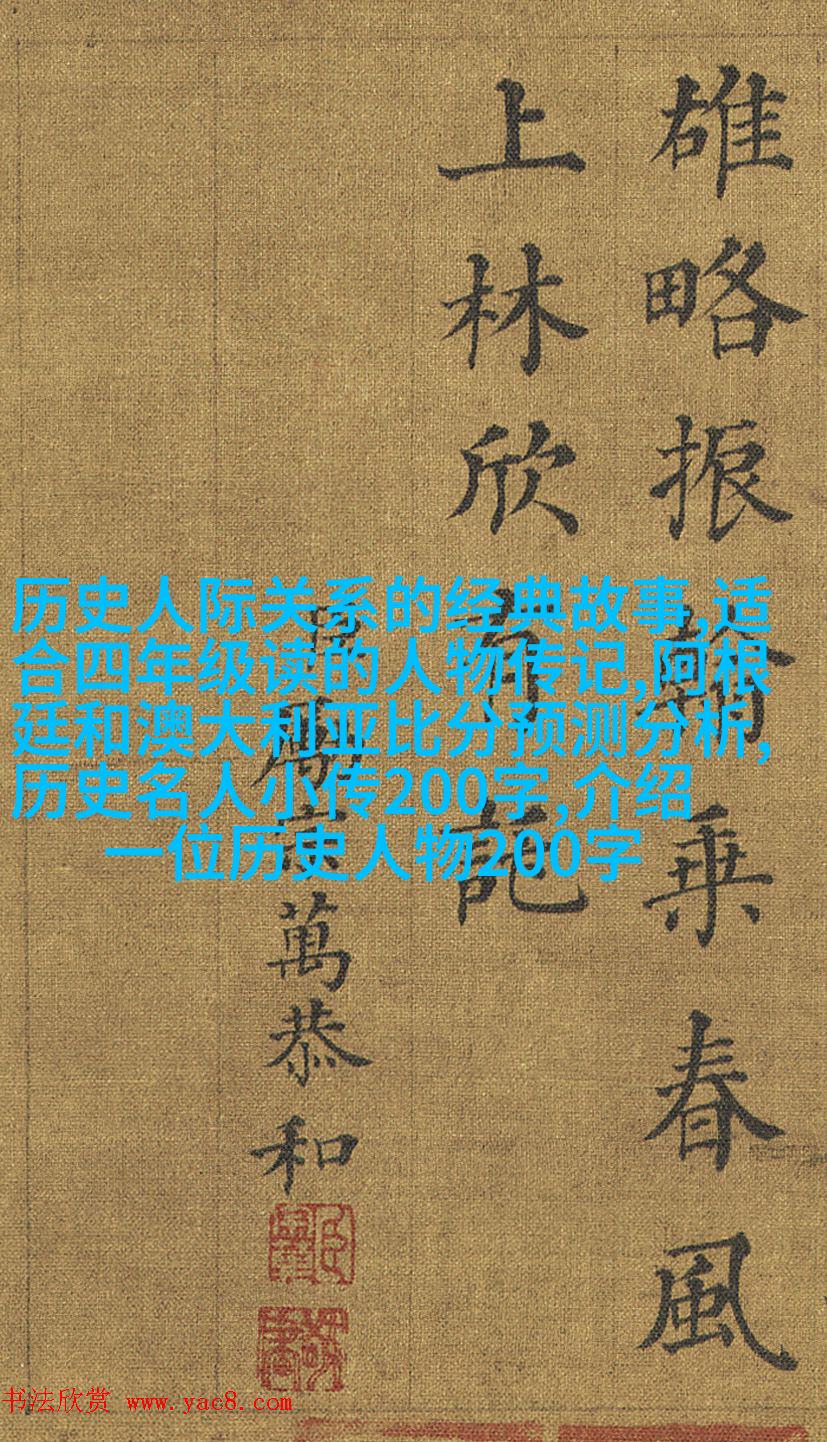 雄略振乘春風
上林欣有
萬恭和
历史人际关系的经典故事,适
合四年级读的人物传记,阿根
廷和澳大利亚比分预测分析,
历史名人小传200字,介绍
一位历史人物200字
书法欣赏 www.yac8.com